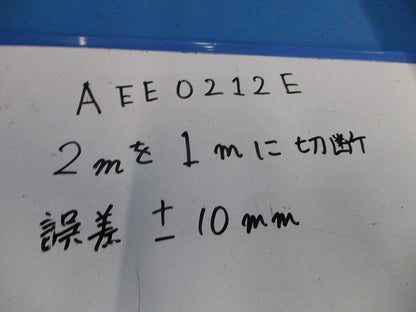 AEE0212E
2mを1mに切断
誤差 ±10mm